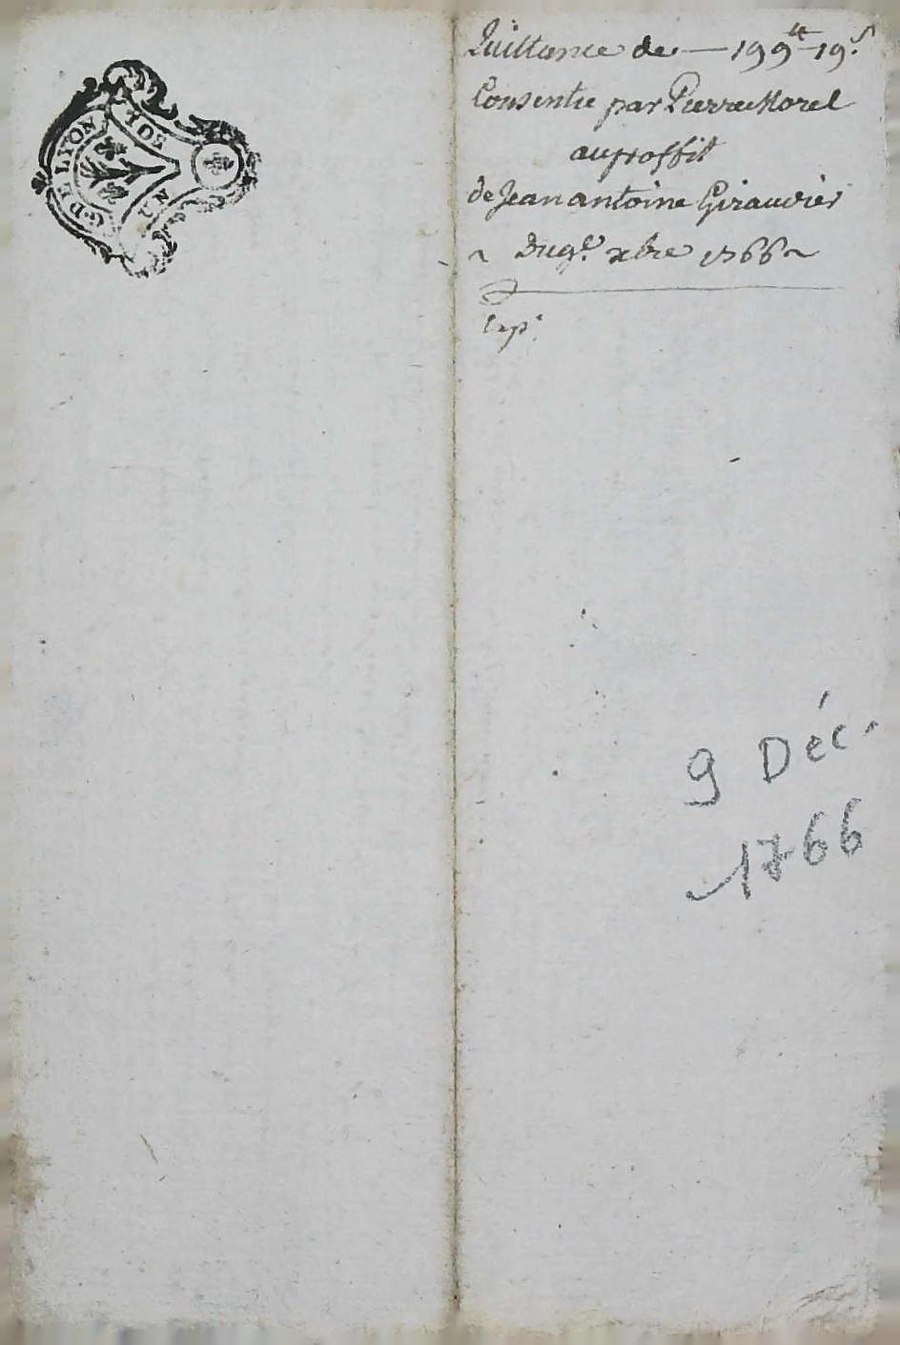 G. DE LYON
4 DE
UN
Quittance de — 199ᵗᵗ 19.ˢ
Consentie par Pierre Morel
au proffit
de Jean antoine Girauvier
~ Du 9.ᵉ xbre 1766 ~
Exp.ᵉ
9 Déc.
1766